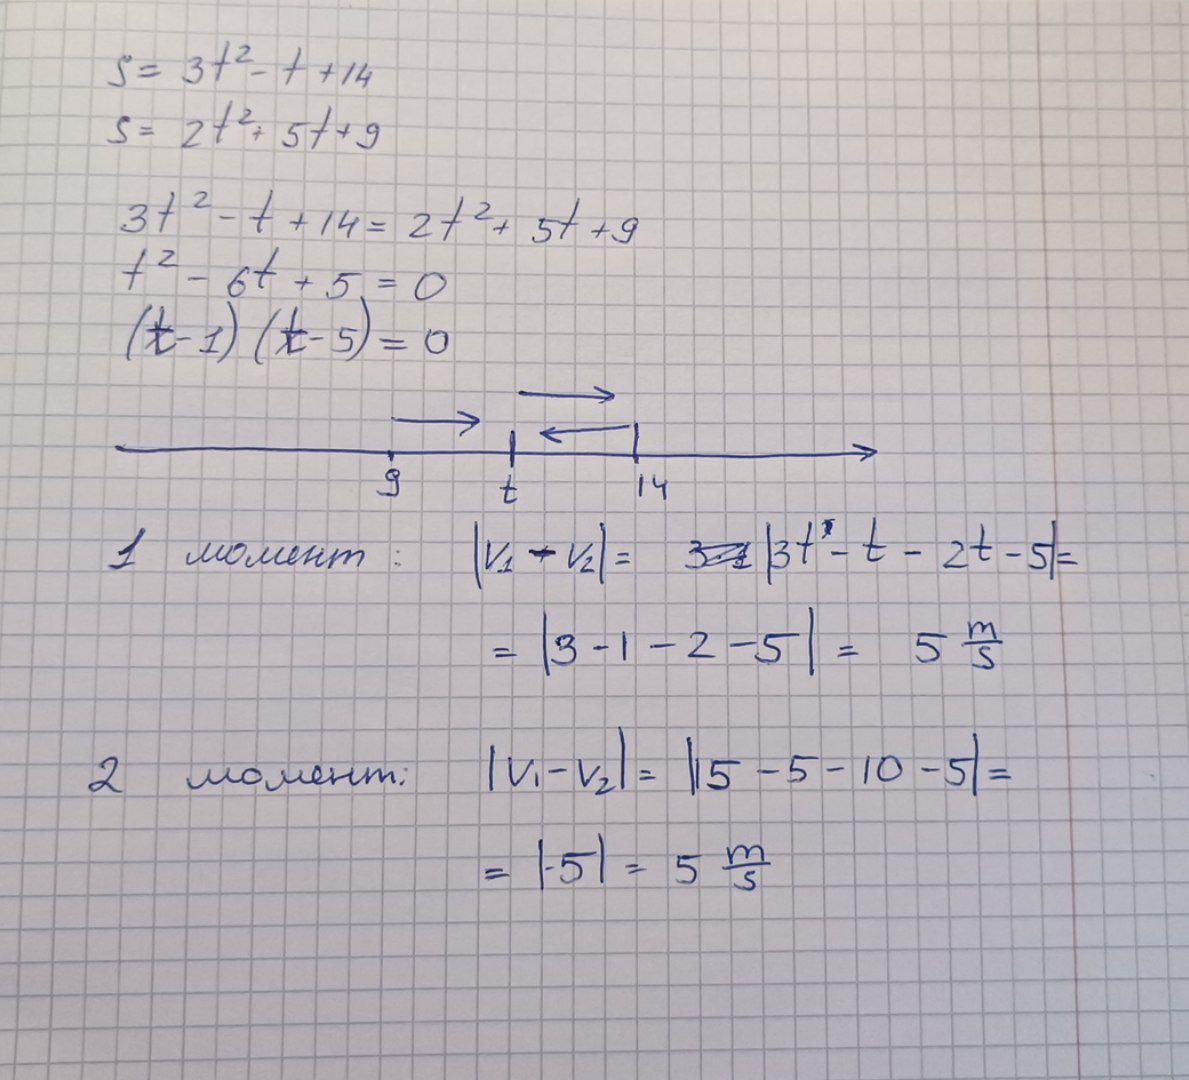 S = 3t² - t + 14
S = 2t² + 5t + 9
3t² - t + 14 = 2t² + 5t + 9
t² - 6t + 5 = 0
(t - 1) (t - 5) = 0
9 t 14
1 момент : |V₁ - V₂| = |3t - t - 2t - 5| =
= |3 - 1 - 2 - 5| = 5 m/s
2 момент: |V₁ - V₂| = |15 - 5 - 10 - 5| =
= |-5| = 5 m/s